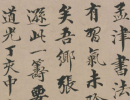 孟津書法
有習氣未除
矣吾鄉張
溫此一籌要
道光丁亥中